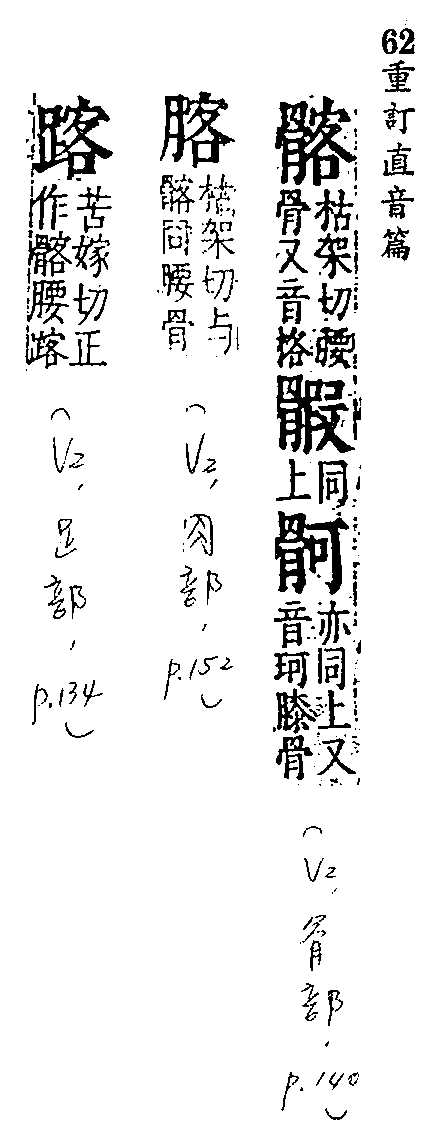 62重訂直音篇
髂 枯架切腰骨又音挌 同上 䯊 亦同上又音珂膝骨
(V2, 骨部, p.140)
枯架切与髂同腰骨
(V2, 肉部, p.152)
苦嫁切正作髂腰
(V2, 足部, p.134)